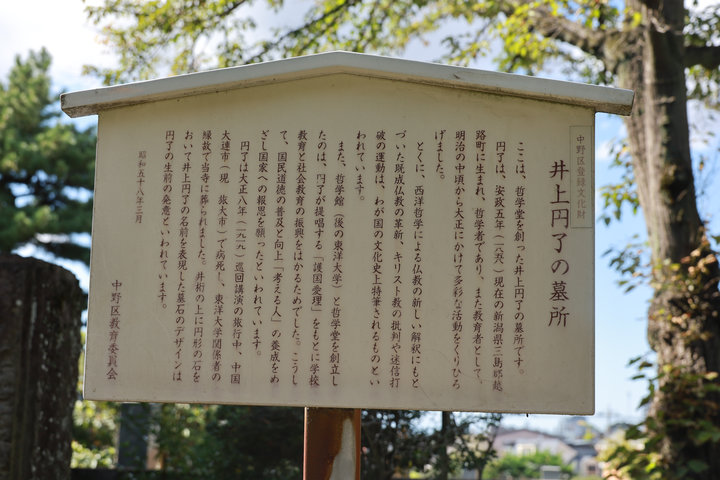 中野区登録文化財
井上円了の墓所
ここは、哲学堂を創った井上円了の墓所です。
円了は、安政五年(一八五八)現在の新潟県三島郡越
路町に生まれ、哲学者であり、また教育者として、
明治の中頃から大正にかけて多彩な活動をくりひろ
げました。
とくに、西洋哲学による仏教の新しい解釈にもと
づいた現成仏教の革新、キリスト教の批判や迷信打
破の運動は、わが国の文化史上特筆されるものとい
われています。
また、哲学館(後の東洋大学)と哲学堂を創立し
たのは、円了が提唱する「護国愛理」をもとに学校
教育と社会教育の振興をはかるためでした。こうし
て、国民道徳の普及と向上「考える人」の養成をめ
ざし国家への報恩を願ったといわれています。
円了は大正八年(一九一九)巡回講演の旅行中、中国
大連市(現 旅大市)で病死し、東洋大学関係者の
縁故で当寺に葬られました。井桁の上に円形の石を
おいて井上円了の名前を表現した墓石のデザインは
円了の生前の発意といわれています。
昭和五十八年三月
中野区教育委員会